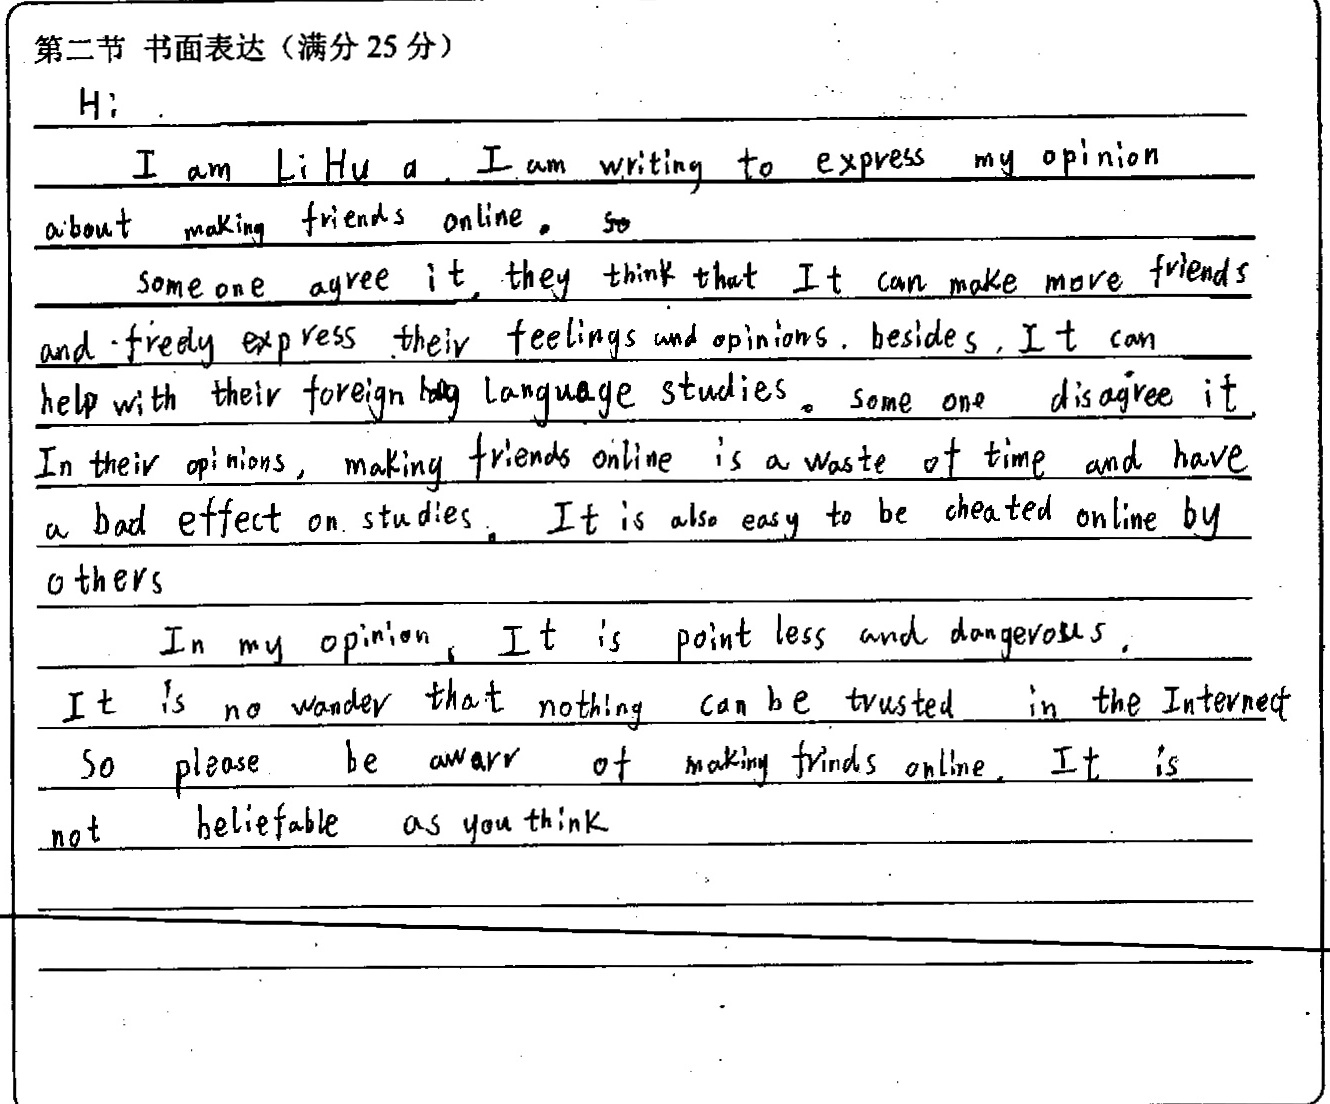 第二节 书面表达（满分 25 分）
Hi
I am Li Hua. I am writing to express my opinion
about making friends online. so
some one agree it, they think that It can make more friends
and freely express their feelings and opinions. besides, It can
help with their foreign language studies. some one disagree it.
In their opinions, making friends online is a waste of time and have
a bad effect on studies. It is also easy to be cheated online by
others
In my opinion, It is point less and dangerous.
It is no wander that nothing can be trusted in the Internect
So please be awarr of making frinds online. It is
not beliefable as you think